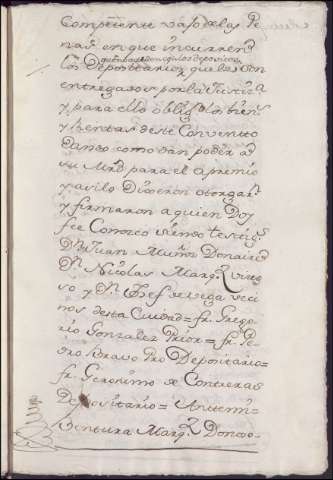 Competente vajo de las Pe
nas en que incurren
los Depositarios que les son
entregados por la Justizia
y para ello obligo los bienes
y Rentas deste Convento
dando como dan poder a
su Mrd para el apremio
y asi lo Dixeron otorgarn
y firmaron a quien Doy
fee Conozco siendo testigs
Dn Juan Muñoz Donaire
Dn Nicolas Marqz
so y Dn Josef se vega veci
nos desta Ciudad = fr. Grego
rio Gonzalez Prior = fr. Pe
dro Bravo Pro Depositario =
fr. Geronimo de Contreras
Depositario = Antemi =
Ventura Marqz Donoso =